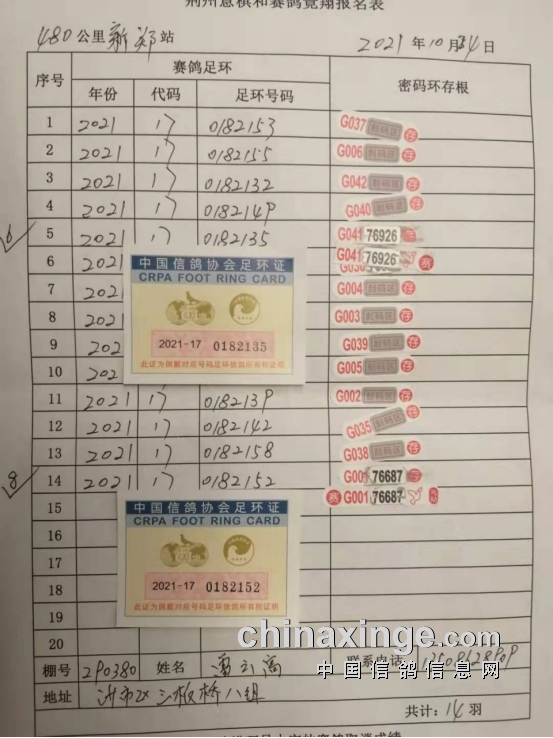 荆州慧棋和赛鸽竞翔报名表
480公里新郑站 2021年10月24日
序号 赛鸽足环 密码环存根
年份 代码 足环号码
1 2021 17 0182153 G037 刮码区 存
2 2021 17 0182155 G006 刮码区 存
3 2021 17 0182132 G042 刮码区 存
4 2021 17 0182149 G040 刮码区 存
6 5 2021 17 0182135 G041 76926 存
6 2021 G041 76926
7 2021 G004 刮码区 存
8 2021 G003 刮码区 存
9 202 G039 刮码区 存
10 202 G005 刮码区 存
中国信鸽协会足环证
CRPA FOOT RING CARD
2021-17 0182135
此证为佩戴对应号码足环信鸽所有权证明
11 2021 17 0182139 G002 刮码区 存
12 2021 17 0182142 G035 刮码区 存
13 2021 17 0182158 G038 刮码区 存
8 14 2021 17 0182152 G001 76687 存
15 G001 76687
中国信鸽协会足环证
CRPA FOOT RING CARD
2021-17 0182152
此证为佩戴对应号码足环信鸽所有权证明
16
17
18
19
20
chinaxinge.com
中国信鸽信息网
棚号 290380 姓名 联系电话
地址 沙市区三板桥八组
共计:14羽